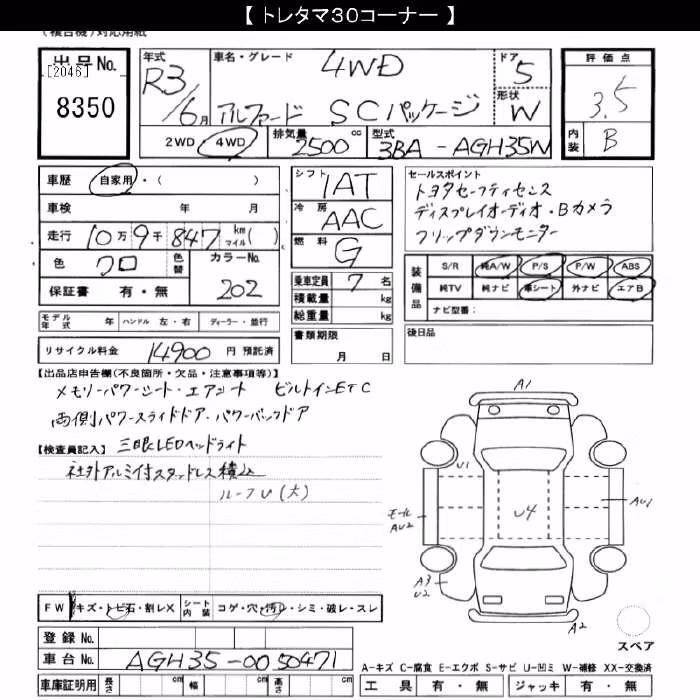 【 トレタマ３０コーナー 】
(複合機) 対応用紙
出品No. [2046] 8350
年式 R3/6月
車名・グレード 4WD アルファード SCパッケージ
ドア 5
形状 W
評価点 3.5
内装 B
2WD・4WD 排気量 2500 cc 型式 3BA-AGH35W
車歴 自家用・( )
車検 年 月
走行 10万9千847 km マイル( )
色 クロ 色替 カラーNo. 202
保証書 有・無
シフト IAT
冷房 AAC
燃料 G
乗車定員 7名
積載量 kg
総重量 kg
書類期限 月 日
セールスポイント
トヨタセーフティセンス
ディスプレイオーディオ・Bカメラ
フリップダウンモニター
装備品 S/R 純A/W P/S P/W ABS
純TV 純ナビ 革シート 外ナビ エアB
ナビ型番:
後日品
モデル年式 年 ハンドル 左・右 ディーラー・並行
リサイクル料金 14900 円 預託済
【出品店申告欄(不良箇所・欠品・注意事項等)】
メモリーパワーシート・エアシート ビルトインETC
両側パワースライドドア・パワーバックドア
【検査員記入】 三眼LEDヘッドライト
社外アルミ付スタッドレス積込
ルーフU(大)
A1
U1
モール AU2
U4
AU1
A3 U2
A2
スペア
FW キズ・トビ石・割レX シート内装 コゲ・穴・汚レ・シミ・破レ・スレ
登録No.
車台No. AGH35-0050471
車庫証明用 長さ cm 幅 cm 高さ cm
A-キズ C-腐食 E-エクボ S-サビ U-凹ミ W-補修 XX-交換済
工具 有・無 ジャッキ 有・無